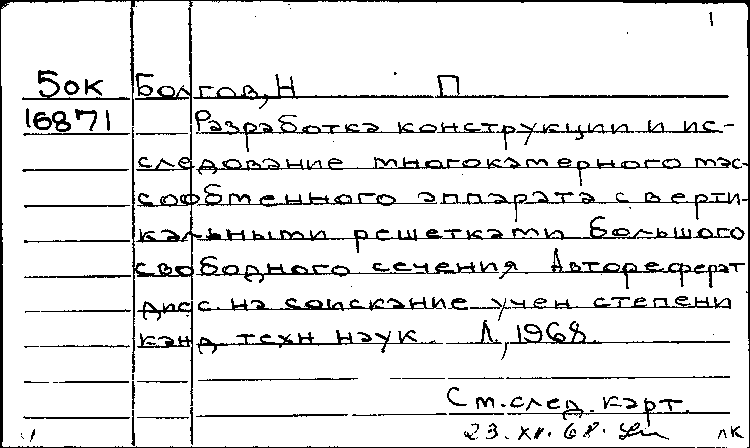 1
Бок Болгов, Н П
16871 Разработка конструкции и ис-
следование многокамерного мас-
сообменного аппарата с верти-
кальными решетками большого
свободного сечения. Автореферат
дисс. на соискание учен степени
канд техн наук. Л., 1968.
См. след. карт.
23. XII. 68. лк